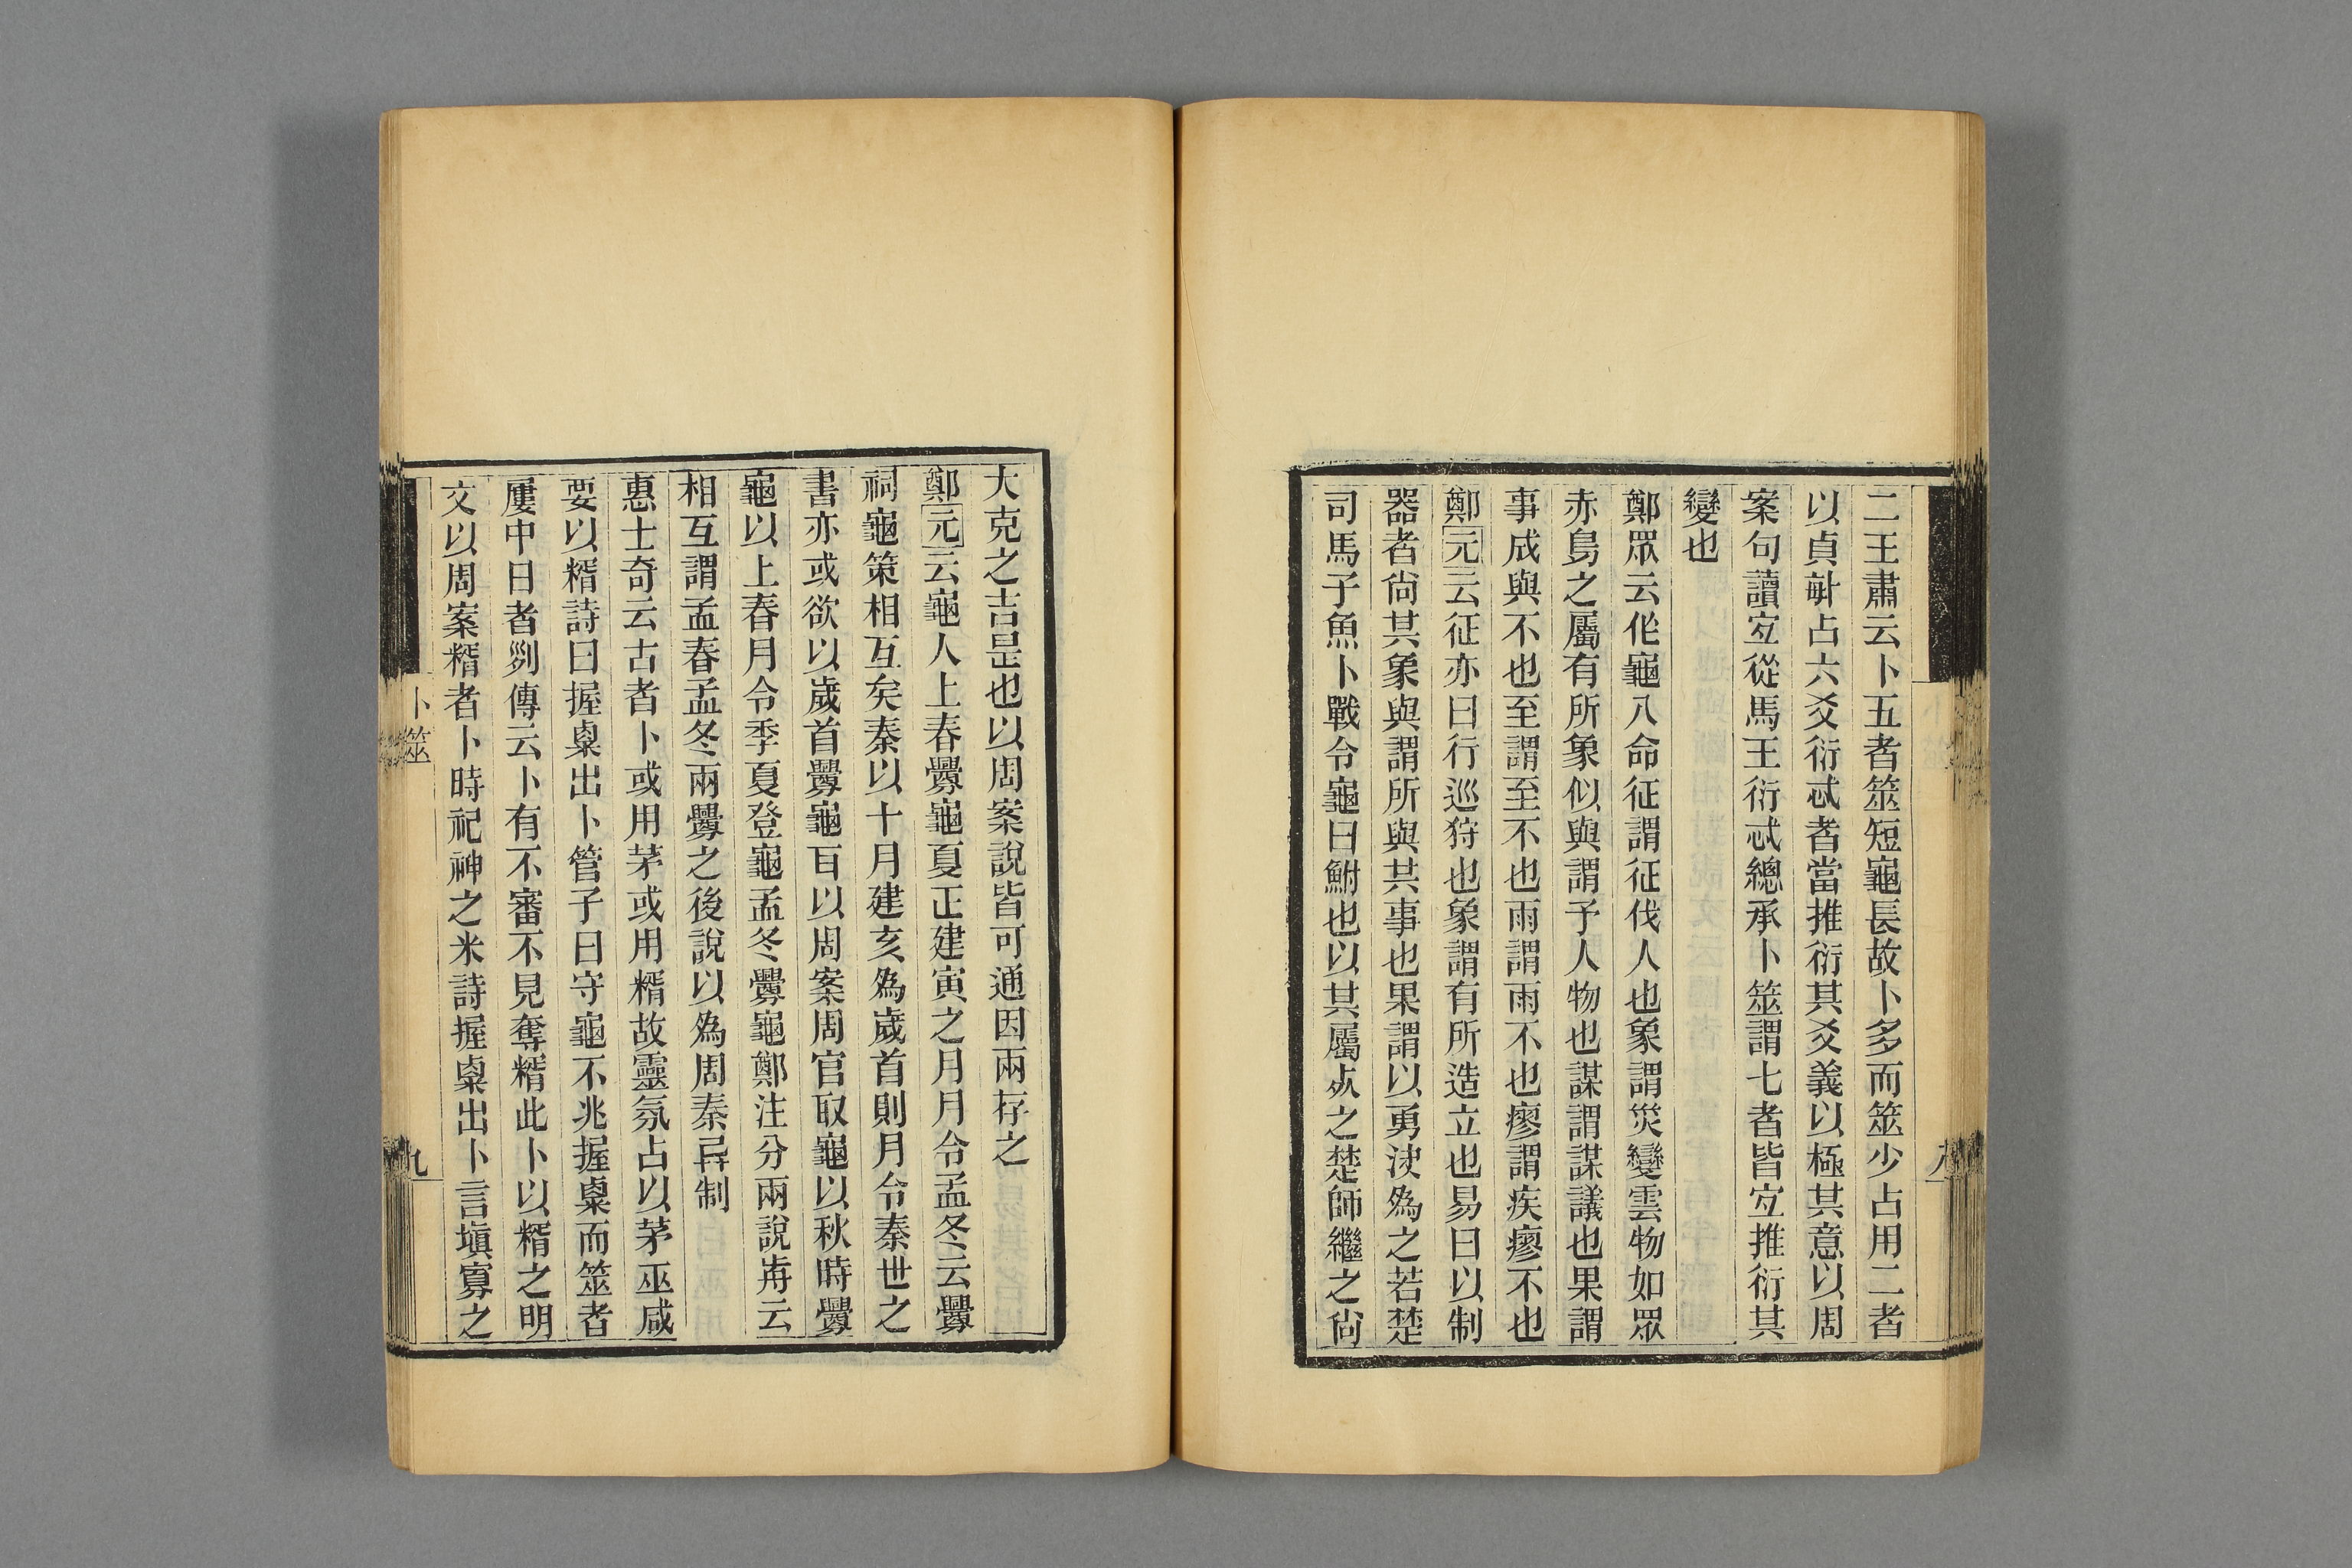 二王肅云卜五者筮短龜長故卜多而筮少占用二者
以貞𠧩占六爻衍忒者當推衍其爻義以極其意以周
案句讀宐從馬王衍忒總承卜筮謂七者皆宐推衍其
變也
鄭眾云作龜八命征謂征伐人也象謂災變雲物如眾
赤鳥之屬有所象似與謂予人物也謀謂謀議也果謂
事成與不也至謂至不也雨謂雨不也瘳謂疾瘳不也
鄭元云征亦曰行巡狩也象謂有所造立也易曰以制
器者尚其象與謂所與共事也果謂以勇決為之若楚
司馬子魚卜戰令龜曰鮒也以其屬𣦸之楚師繼之尚
八
大克之吉是也以周案說皆可通因兩存之
鄭元云龜人上春釁龜夏正建寅之月月令孟冬云釁
祠龜策相互矣秦以十月建亥為歲首則月令秦世之
書亦或欲以歲首釁龜耳以周案周官取龜以秋時釁
龜以上春月令季夏登龜孟冬釁龜鄭注分兩說歬云
相互謂孟春孟冬兩釁之後說以為周秦异制
惠士奇云古者卜或用茅或用糈故靈氛占以茅巫咸
要以糈詩曰握粟出卜管子曰守龜不兆握粟而筮者
屢中日者列傳云卜有不審不見奪糈此卜以糈之明
文以周案糈者卜時祀神之米詩握粟出卜言塡寡之
卜筮
九